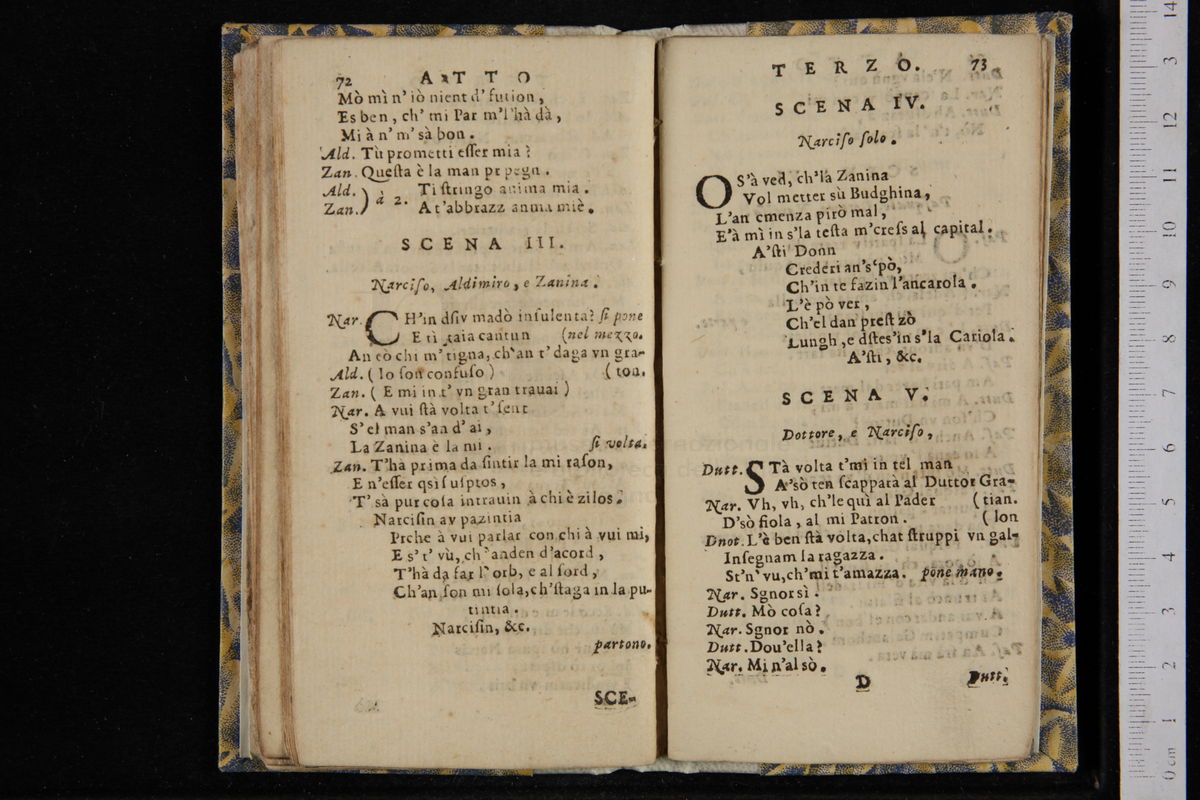 72 ATTO
Mò mì n' iò nient d' fution,
Es ben, ch' mi Par m'l'hà dà,
Mi à n' m' sà bon.
Ald. Tù prometti eſſer mia?
Zan. Queſta è la man pr pegn.
Ald. ) à 2. Ti ſtringo anima mia.
Zan. ) A t'abbrazz anma miè.
SCENA III.
Narciſo, Aldimiro, e Zanina.
Nar. CH'in dſiv madò inſulenta? ſi pone
E ti taia cantun (nel mezzo.
An cò chi m' tigna, ch'an t' daga vn gra-
Ald. ( Io ſon confuſo ) ( ton.
Zan. ( E mi in t' vn gran trauai )
Nar. A vui ſtà volta t' ſent
S' el man s'an d' ai,
La Zanina è la mi. ſi volta.
Zan. T'hà prima da ſintir la mi raſon,
E n'eſſer qsì ſulptos,
T' sà pur coſa intrauin à chi è zilos.
Narciſin av pazintia
Prche à vui parlar con chi à vui mi,
E s' t' vù, ch' anden d'acord,
T'hà da far l' orb, e al ſord,
Ch'an ſon mi ſola, ch'ſtaga in la pu-
tintia.
Narciſin, &c.
partono.
SCE-
TERZO. 73
SCENA IV.
Narciſo ſolo.
OS'à ved, ch'la Zanina
Vol metter sù Budghina,
L'an cmenza pirò mal,
E'à mì in s'la teſta m'creſs al capital.
A'ſti Donn
Crederi an's'pò,
Ch'in te fazin l'ancarola.
L'è pò ver,
Ch'el dan preſt zò
Lungh, e dſtes'in s'la Cariola.
A'ſti, &c.
SCENA V.
Dottore, e Narciſo,
Dutt. STà volta t'mi in tel man
A'sò ten ſcapparà al Duttor Gra-
Nar. Vh, vh, ch'le quì al Pader ( tian.
D'sò fiola, al mi Patron. ( lon
Dnot. L'è ben ſtà volta, chat ſtruppi vn gal-
Inſegnam la ragazza.
St'n' vu, ch'mi t'amazza. pone mano.
Nar. Sgnor sì.
Dutt. Mò coſa?
Nar. Sgnor nò.
Dutt. Dou'ella?
Nar. Mi n'al sò.
D Dutt.